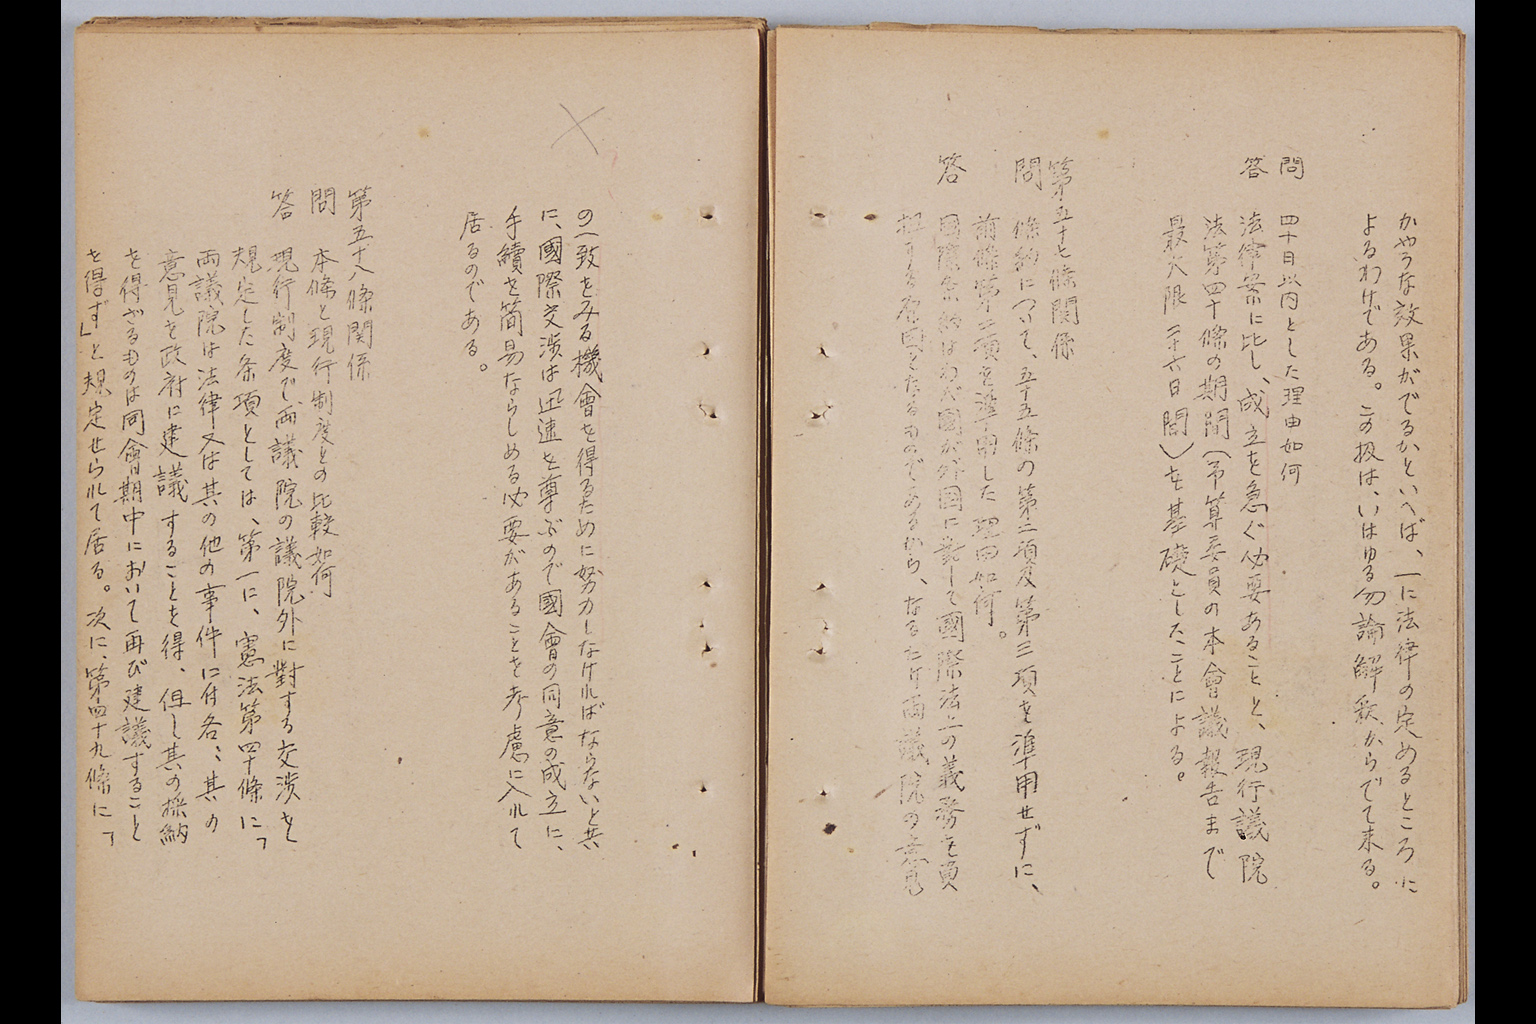 かやうな效果がでるかといへば、一に法律の定めるところに
よるわけである。この扱は、いはゆる勿論解釈からでて来る。
問　四十日以内とした理由如何
答　法律案に比し、成立を急ぐ必要あることと、現行議院
法第四十條の期間（予算委員の本會議報告まで
最大限二十六日間）を基礎としたことによる。
第五十七條関係
問　條約について、五十五條の第二項及第三項を準用せずに、
前條第二項を準用した理由如何。
答　國際條約はわが國が外國に対して國際法上の義務を負
担する原因となるものであるから、なるたけ両議院の意見
の一致をみる機會を得るために努力しなければならないと共
に、國際交渉は迅速を尊ぶので國會の同意の成立に、
手續を簡易ならしめる必要があることを考慮に入れて
居るのである。
第五十八條関係
問　本條と現行制度との比較如何
答　現行制度で、両議院の議院外に對する交渉を
規定した条項としては、第一に、憲法第四十條に「
両議院は法律又は其の他の事件に付各〻其の
意見を政府に建議することを得、但し其の採納
を得ざるものは同會期中において再び建議すること
を得ず」と規定せられて居る。次に第四十九條に「